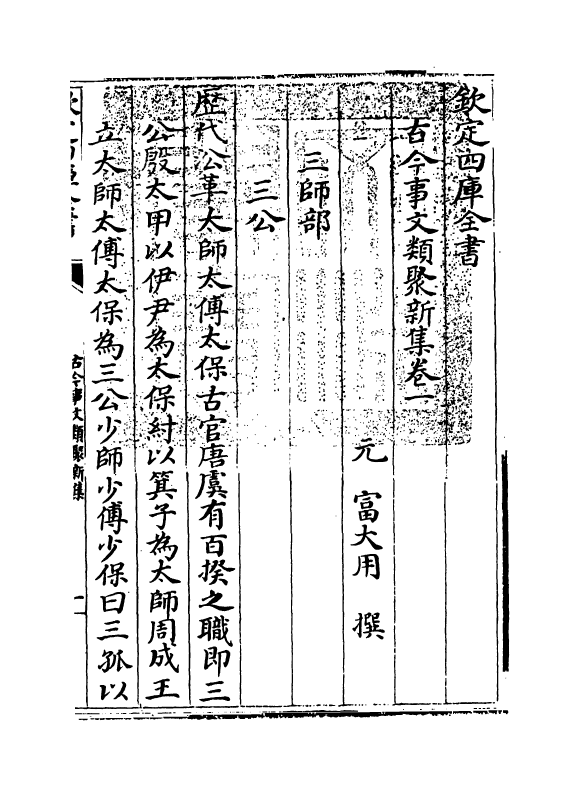 欽定四庫全書
古今事文類聚新集卷一
元 富大用 撰
三師部
三公
歷代沿革太師太傅太保古官唐虞有百揆之職即三
公殷太甲以伊尹為太保紂以箕子為太師周成王
立太師太傅太保為三公少師少傅少保曰三孤以
古今事文類聚新集
一